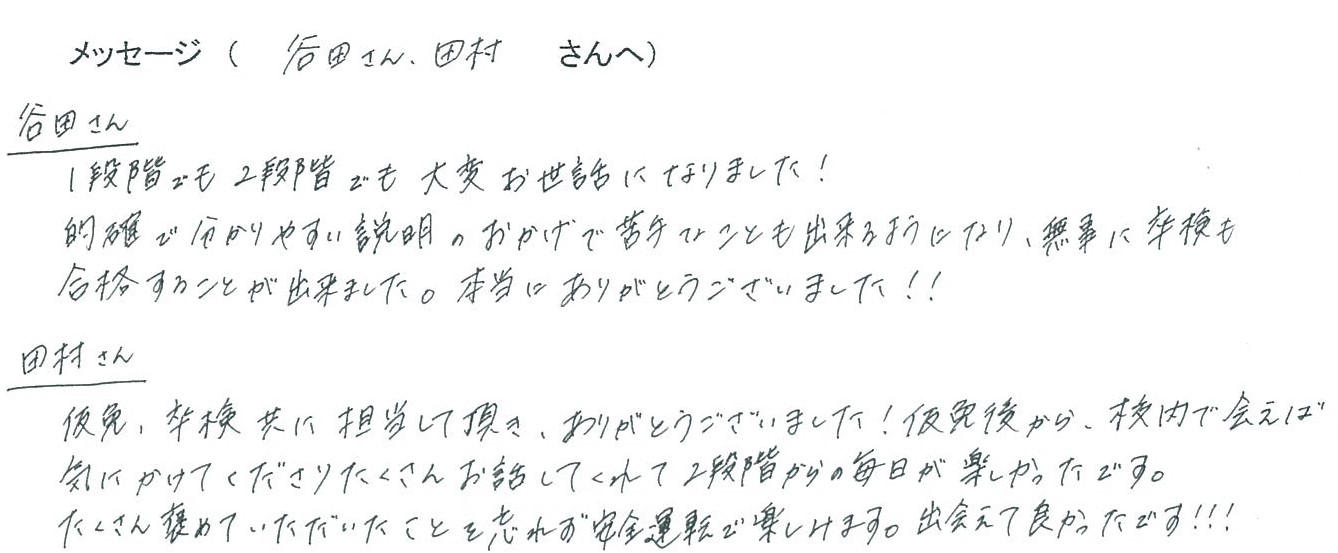 メッセージ（ 谷田さん、田村 さんへ）
谷田さん
1段階でも2段階でも大変お世話になりました！
的確で分かりやすい説明のおかげで苦手なことも出来るようになり、無事に卒検も
合格することが出来ました。本当にありがとうございました！！
田村さん
仮免、卒検共に担当して頂き、ありがとうございました！仮免後から、校内で会えば
気にかけてくださりたくさんお話してくれて2段階からの毎日が楽しかったです。
たくさん褒めていただいたことを忘れず安全運転で楽しみます。出会えて良かったです！！！